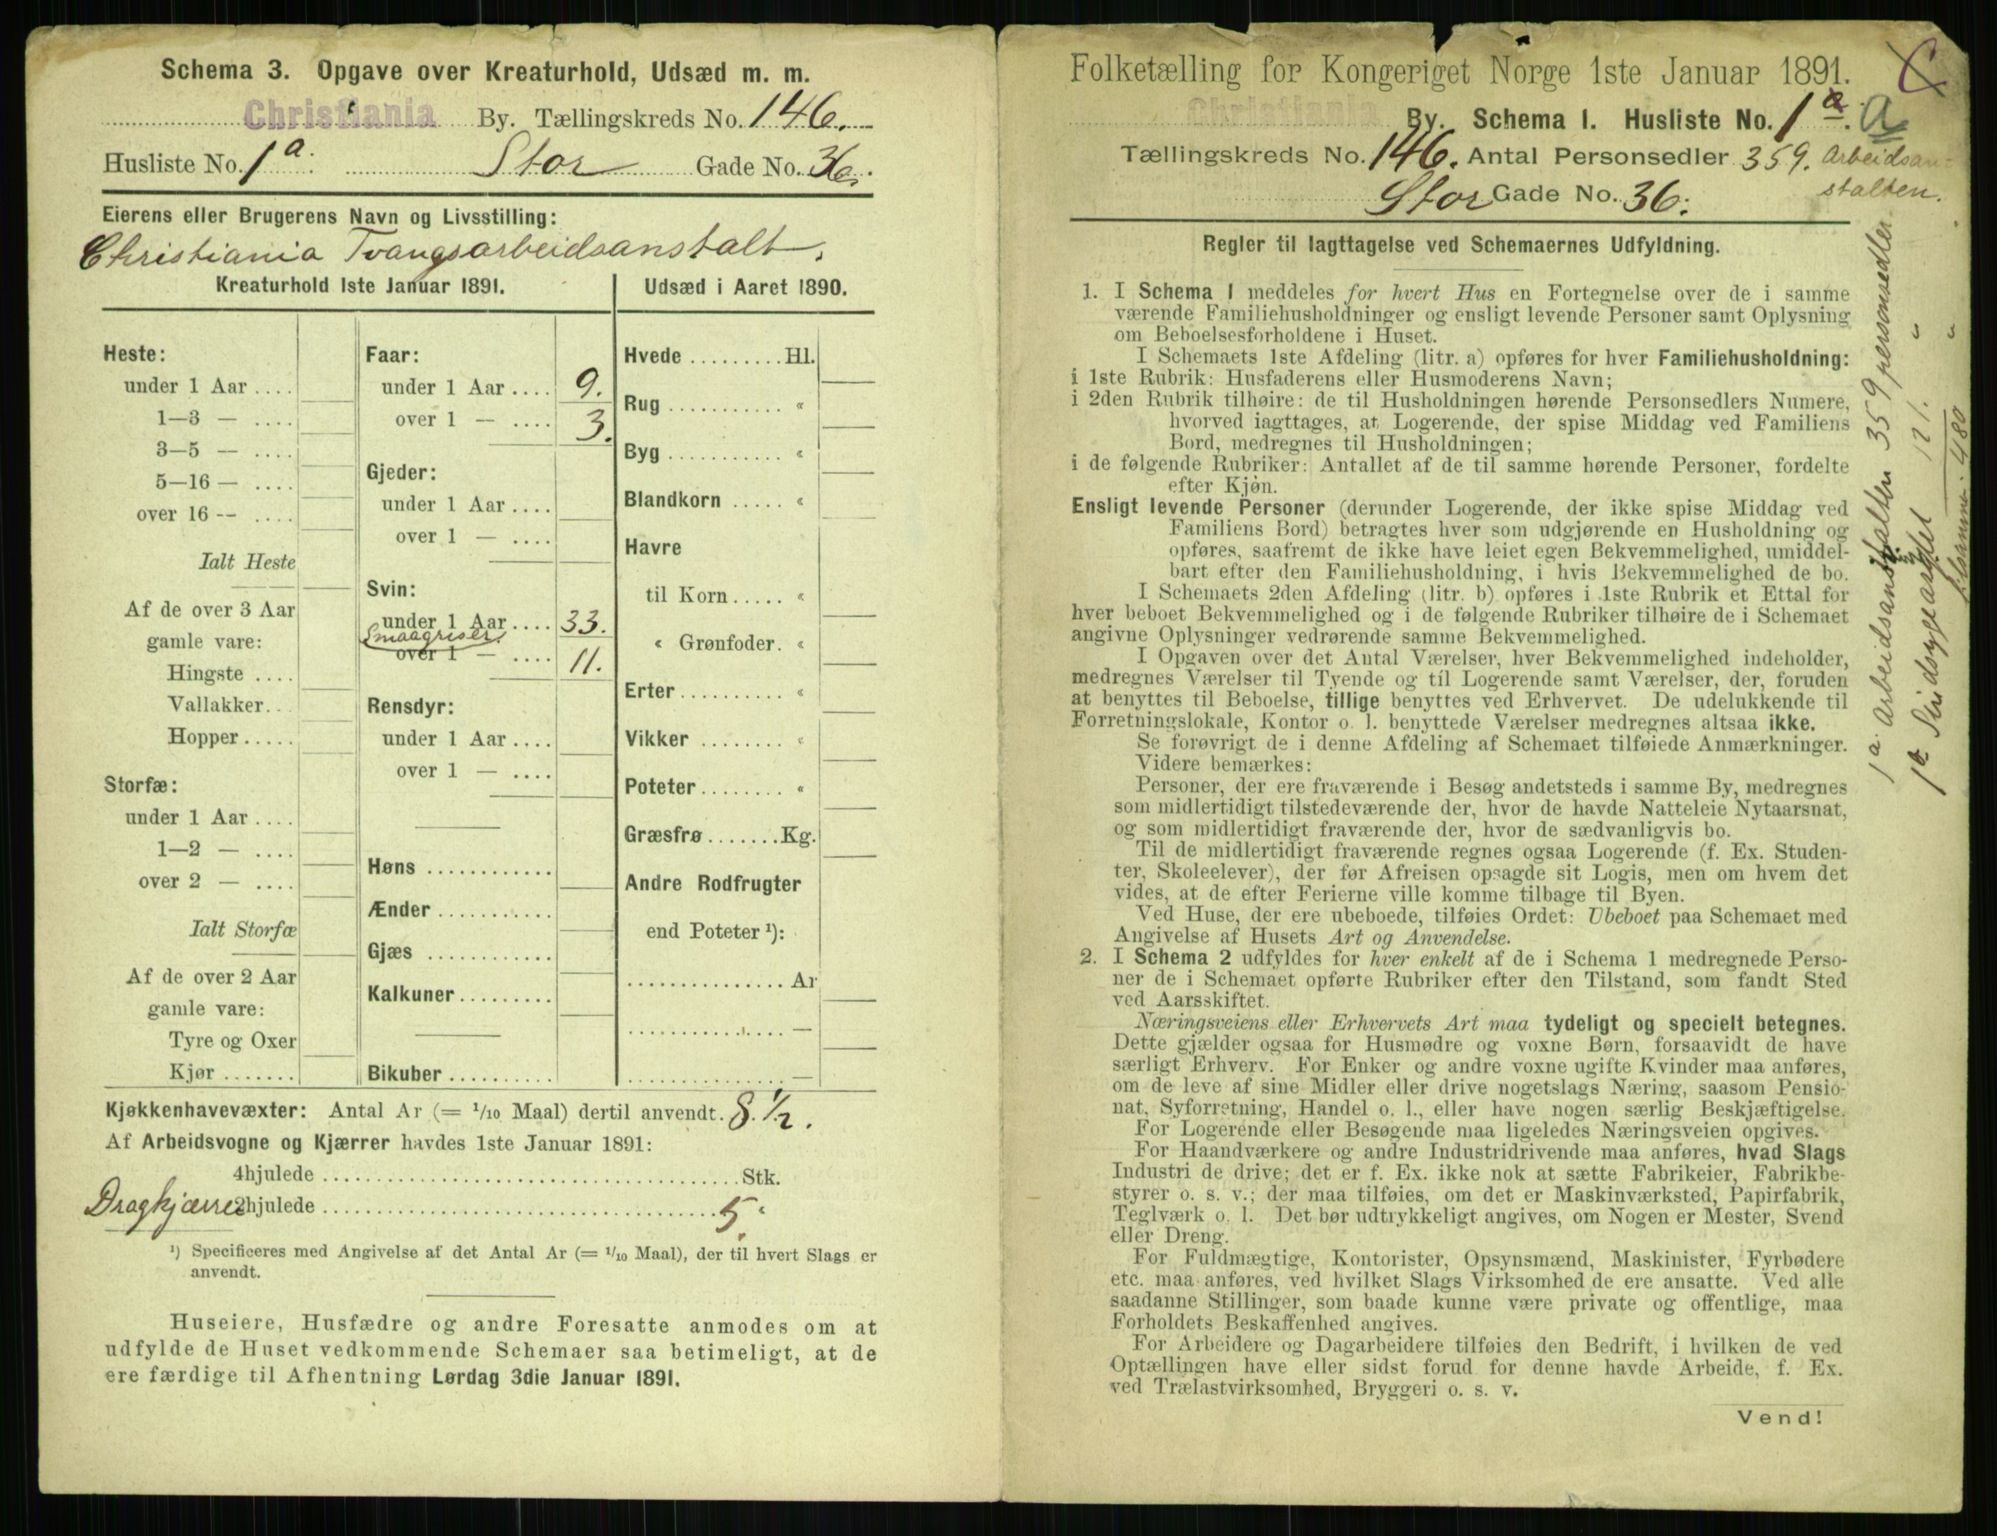 Schema 3. Opgave over Kreaturhold, Udsæd m. m.
Christiania By. Tællingskreds No. 146.
Husliste No. 1a. Stor Gade No. 36.
Eierens eller Brugerens Navn og Livsstilling:
Christiania Tvangsarbeidsanstalt.
Kreaturhold 1ste Januar 1891.
Heste:
under 1 Aar ....
1—3 — ....
3—5 — ....
5—16 — ....
over 16 -- ....
Ialt Heste
Af de over 3 Aar
gamle vare:
Hingste ....
Vallakker..
Hopper.....
Storfæ:
under 1 Aar ....
1—2 — ....
over 2 — ....
Ialt Storfæ
Af de over 2 Aar
gamle vare:
Tyre og Oxer
Kjør .......
Faar:
under 1 Aar .... 9.
over 1 — .... 3.
Gjeder:
under 1 Aar ....
over 1 — ....
Svin:
under 1 Aar .... 33.
Smaagriser
over 1 — .... 11.
Rensdyr:
under 1 Aar ....
over 1 — ....
Høns ............
Ænder ...........
Gjæs ............
Kalkuner.........
Bikuber ..........
Udsæd i Aaret 1890.
Hvede .........Hl.
Rug ........... «
Byg ........... «
Blandkorn ..... «
Havre
til Korn..... «
« Grønfoder. «
Erter.......... «
Vikker ........ «
Poteter........ «
Græsfrø .......Kg.
Andre Rodfrugter
end Poteter ¹):
............... Ar
............... —
............... —
Kjøkkenhavevæxter: Antal Ar (= 1/10 Maal) dertil anvendt. 8 1/2.
Af Arbeidsvogne og Kjærrer havdes 1ste Januar 1891:
4hjulede ........................................Stk.
Dragkjærrer 2hjulede ..................................... 5. «
¹) Specificeres med Angivelse af det Antal Ar (= 1/10 Maal), der til hvert Slags er
anvendt.
Huseiere, Husfædre og andre Foresatte anmodes om at
udfylde de Huset vedkommende Schemaer saa betimeligt, at de
ere færdige til Afhentning Lørdag 3die Januar 1891.
Folketælling for Kongeriget Norge 1ste Januar 1891. C
Christiania By. Schema I. Husliste No. 1a. a
Tællingskreds No. 146. Antal Personsedler 359. Arbeidsan-
stalten.
Stor Gade No. 36.
Regler til Iagttagelse ved Schemaernes Udfyldning.
1. I Schema I meddeles for hvert Hus en Fortegnelse over de i samme
værende Familiehusholdninger og ensligt levende Personer samt Oplysning
om Beboelsesforholdene i Huset.
I Schemaets 1ste Afdeling (litr. a) opføres for hver Familiehusholdning:
i 1ste Rubrik: Husfaderens eller Husmoderens Navn;
i 2den Rubrik tilhøire: de til Husholdningen hørende Personsedlers Numere,
hvorved iagttages, at Logerende, der spise Middag ved Familiens
Bord, medregnes til Husholdningen;
i de følgende Rubriker: Antallet af de til samme hørende Personer, fordelte
efter Kjøn.
Ensligt levende Personer (derunder Logerende, der ikke spise Middag ved
Familiens Bord) betragtes hver som udgjørende en Husholdning og
opføres, saafremt de ikke have leiet egen Bekvemmelighed, umiddel-
bart efter den Familiehusholdning, i hvis Bekvemmelighed de bo.
I Schemaets 2den Afdeling (litr. b) opføres i 1ste Rubrik et Ettal for
hver beboet Bekvemmelighed og i de følgende Rubriker tilhøire de i Schemaet
angivne Oplysninger vedrørende samme Bekvemmelighed.
I Opgaven over det Antal Værelser, hver Bekvemmelighed indeholder,
medregnes Værelser til Tyende og til Logerende samt Værelser, der, foruden
at benyttes til Beboelse, tillige benyttes ved Erhvervet. De udelukkende til
Forretningslokale, Kontor o. l. benyttede Værelser medregnes altsaa ikke.
Se forøvrigt de i denne Afdeling af Schemaet tilføiede Anmærkninger.
Videre bemærkes:
Personer, der ere fraværende i Besøg andetsteds i samme By, medregnes
som midlertidigt tilstedeværende der, hvor de havde Natteleie Nytaarsnat,
og som midlertidigt fraværende der, hvor de sædvanligvis bo.
Til de midlertidigt fraværende regnes ogsaa Logerende (f. Ex. Studen-
ter, Skoleelever), der før Afreisen opsagde sit Logis, men om hvem det
vides, at de efter Ferierne ville komme tilbage til Byen.
Ved Huse, der ere ubeboede, tilføies Ordet: Ubeboet paa Schemaet med
Angivelse af Husets Art og Anvendelse.
2. I Schema 2 udfyldes for hver enkelt af de i Schema 1 medregnede Perso-
ner de i Schemaet opførte Rubriker efter den Tilstand, som fandt Sted
ved Aarsskiftet.
Næringsveiens eller Erhvervets Art maa tydeligt og specielt betegnes.
Dette gjælder ogsaa for Husmødre og voxne Børn, forsaavidt de have
særligt Erhverv. For Enker og andre voxne ugifte Kvinder maa anføres,
om de leve af sine Midler eller drive nogetslags Næring, saasom Pensio-
nat, Syforretning, Handel o. l., eller have nogen særlig Beskjæftigelse.
For Logerende eller Besøgende maa ligeledes Næringsveien opgives.
For Haandværkere og andre Industridrivende maa anføres, hvad Slags
Industri de drive; det er f. Ex. ikke nok at sætte Fabrikeier, Fabrikbe-
styrer o. s. v.; der maa tilføies, om det er Maskinværksted, Papirfabrik,
Teglværk o. l. Det bør udtrykkeligt angives, om Nogen er Mester, Svend
eller Dreng.
For Fuldmægtige, Kontorister, Opsynsmænd, Maskinister, Fyrbødere
etc. maa anføres, ved hvilket Slags Virksomhed de ere ansatte. Ved alle
saadanne Stillinger, som baade kunne være private og offentlige, maa
Forholdets Beskaffenhed angives.
For Arbeidere og Dagarbeidere tilføies den Bedrift, i hvilken de ved
Optællingen have eller sidst forud for denne havde Arbeide, f. Ex.
ved Trælastvirksomhed, Bryggeri o. s. v.
Vend!
1a. Arbeidsanstalten 359 personsedler.
1b Sindsygeasylet 121. " "
tilsammen. 480